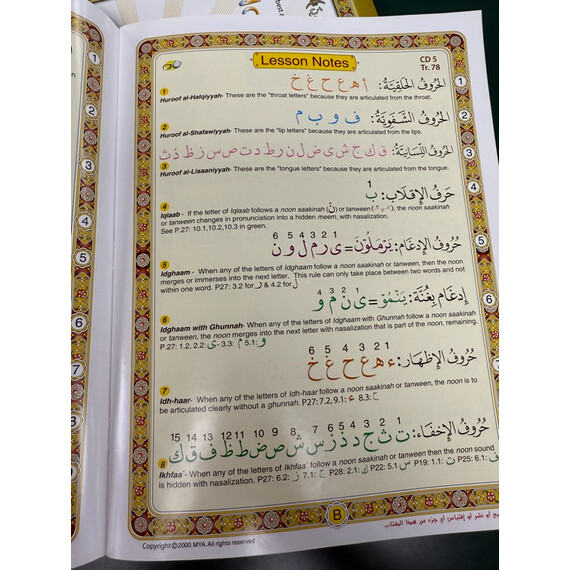 Lesson Notes
CD 5
Tr. 78
الحُرُوفُ الحَلْقِيَّةُ: أ ه ع ح غ خ
1
Huroof al-Halqiyyah- These are the "throat letters" because they are articulated from the throat.
الحُرُوفُ الشَّفَوِيَّةُ: ف و ب م
2
Huroof al-Shafawiyyah- These are the "lip letters" because they are articulated from the lips.
الحُرُوفُ اللِّسَانِيَّةُ: ق ك ج ش ى ض ل ن ر ط د ت ص س ز ظ ذ ث
3
Huroof al-Lisaaniyyah- These are the "tongue letters" because they are articulated from the tongue.
1
حَرفُ الإِقلَابِ: ب
4
Iqlaab - If the letter of Iqlaab follows a noon saakinah (نْ) or tanween, the noon saakinah
or tanween changes in pronunciation into a hidden meem, with nasalization.
See P.27: 10.1,10.2,10.3 in green.
6 5 4 3 2 1
حُرُوفُ الإِدغَامِ: يَرْمَلُوْنَ = ى ر م ل و ن
5
Idghaam - When any of the letters of Idghaam follow a noon saakinah or tanween, then the noon
merges or immerses into the next letter. This rule can only take place between two words and not
within one word. P27: 3.2 for ر & 4.2 for ل
4 3 2 1
إِدغَام بِغُنَّة: يَنْمُوْ = ى ن م و
6
Idghaam with Ghunnah- When any of the letters of Idghaam with Ghunnah follow a noon saakinah
or tanween, the noon merges into the next letter with nasalization that is part of the noon, remaining.
P.27: 1.2, 2.2: ى - 3.3: م 5.1: و
6 5 4 3 2 1
حُرُوفُ الإِظهَارِ: ء ه ع ح غ خ
7
Idh-haar- When any of the letters of Idh-haar follow a noon saakinah or tanween, the noon is to
be articulated clearly without a ghunnah. P27:7.2, 9.1: ء 8.3: ح
15 14 13 12 11 10 9 8 7 6 5 4 3 2 1
حُرُوفُ الإِخفَاءِ: ت ث ج د ذ ز س ش ص ض ط ظ ف ق ك
8
Ikhfaa'- When any of the letters of Ikhfaa' follow a noon saakinah or tanween then the noon sound
is hidden with nasalization. P27: 6.2: ز 7.1: ج P28: 2.1: ل P22: 5.1 س P19: 1.1: ت P25: 6.1: ف
B
Copyright©2000. MYA. All rights reserved
أو نشر او إقتباس أي جزء من هذا الكتاب
1
2
3
4
5
6
7
8
1
2
3
4
5
6
7
8